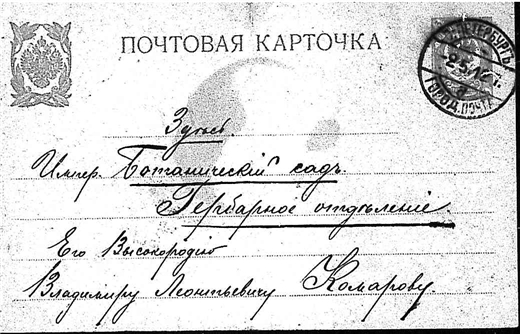 ПОЧТОВАЯ КАРТОЧКА
С.ПЕТЕРБУРГЪ
ГОРОД. ПОЧТА
Здѣсь.
Импер. Ботаническій садъ
Гербарное отдѣленіе.
Его Высокородію
Владимиру Леонтьевичу Комарову.